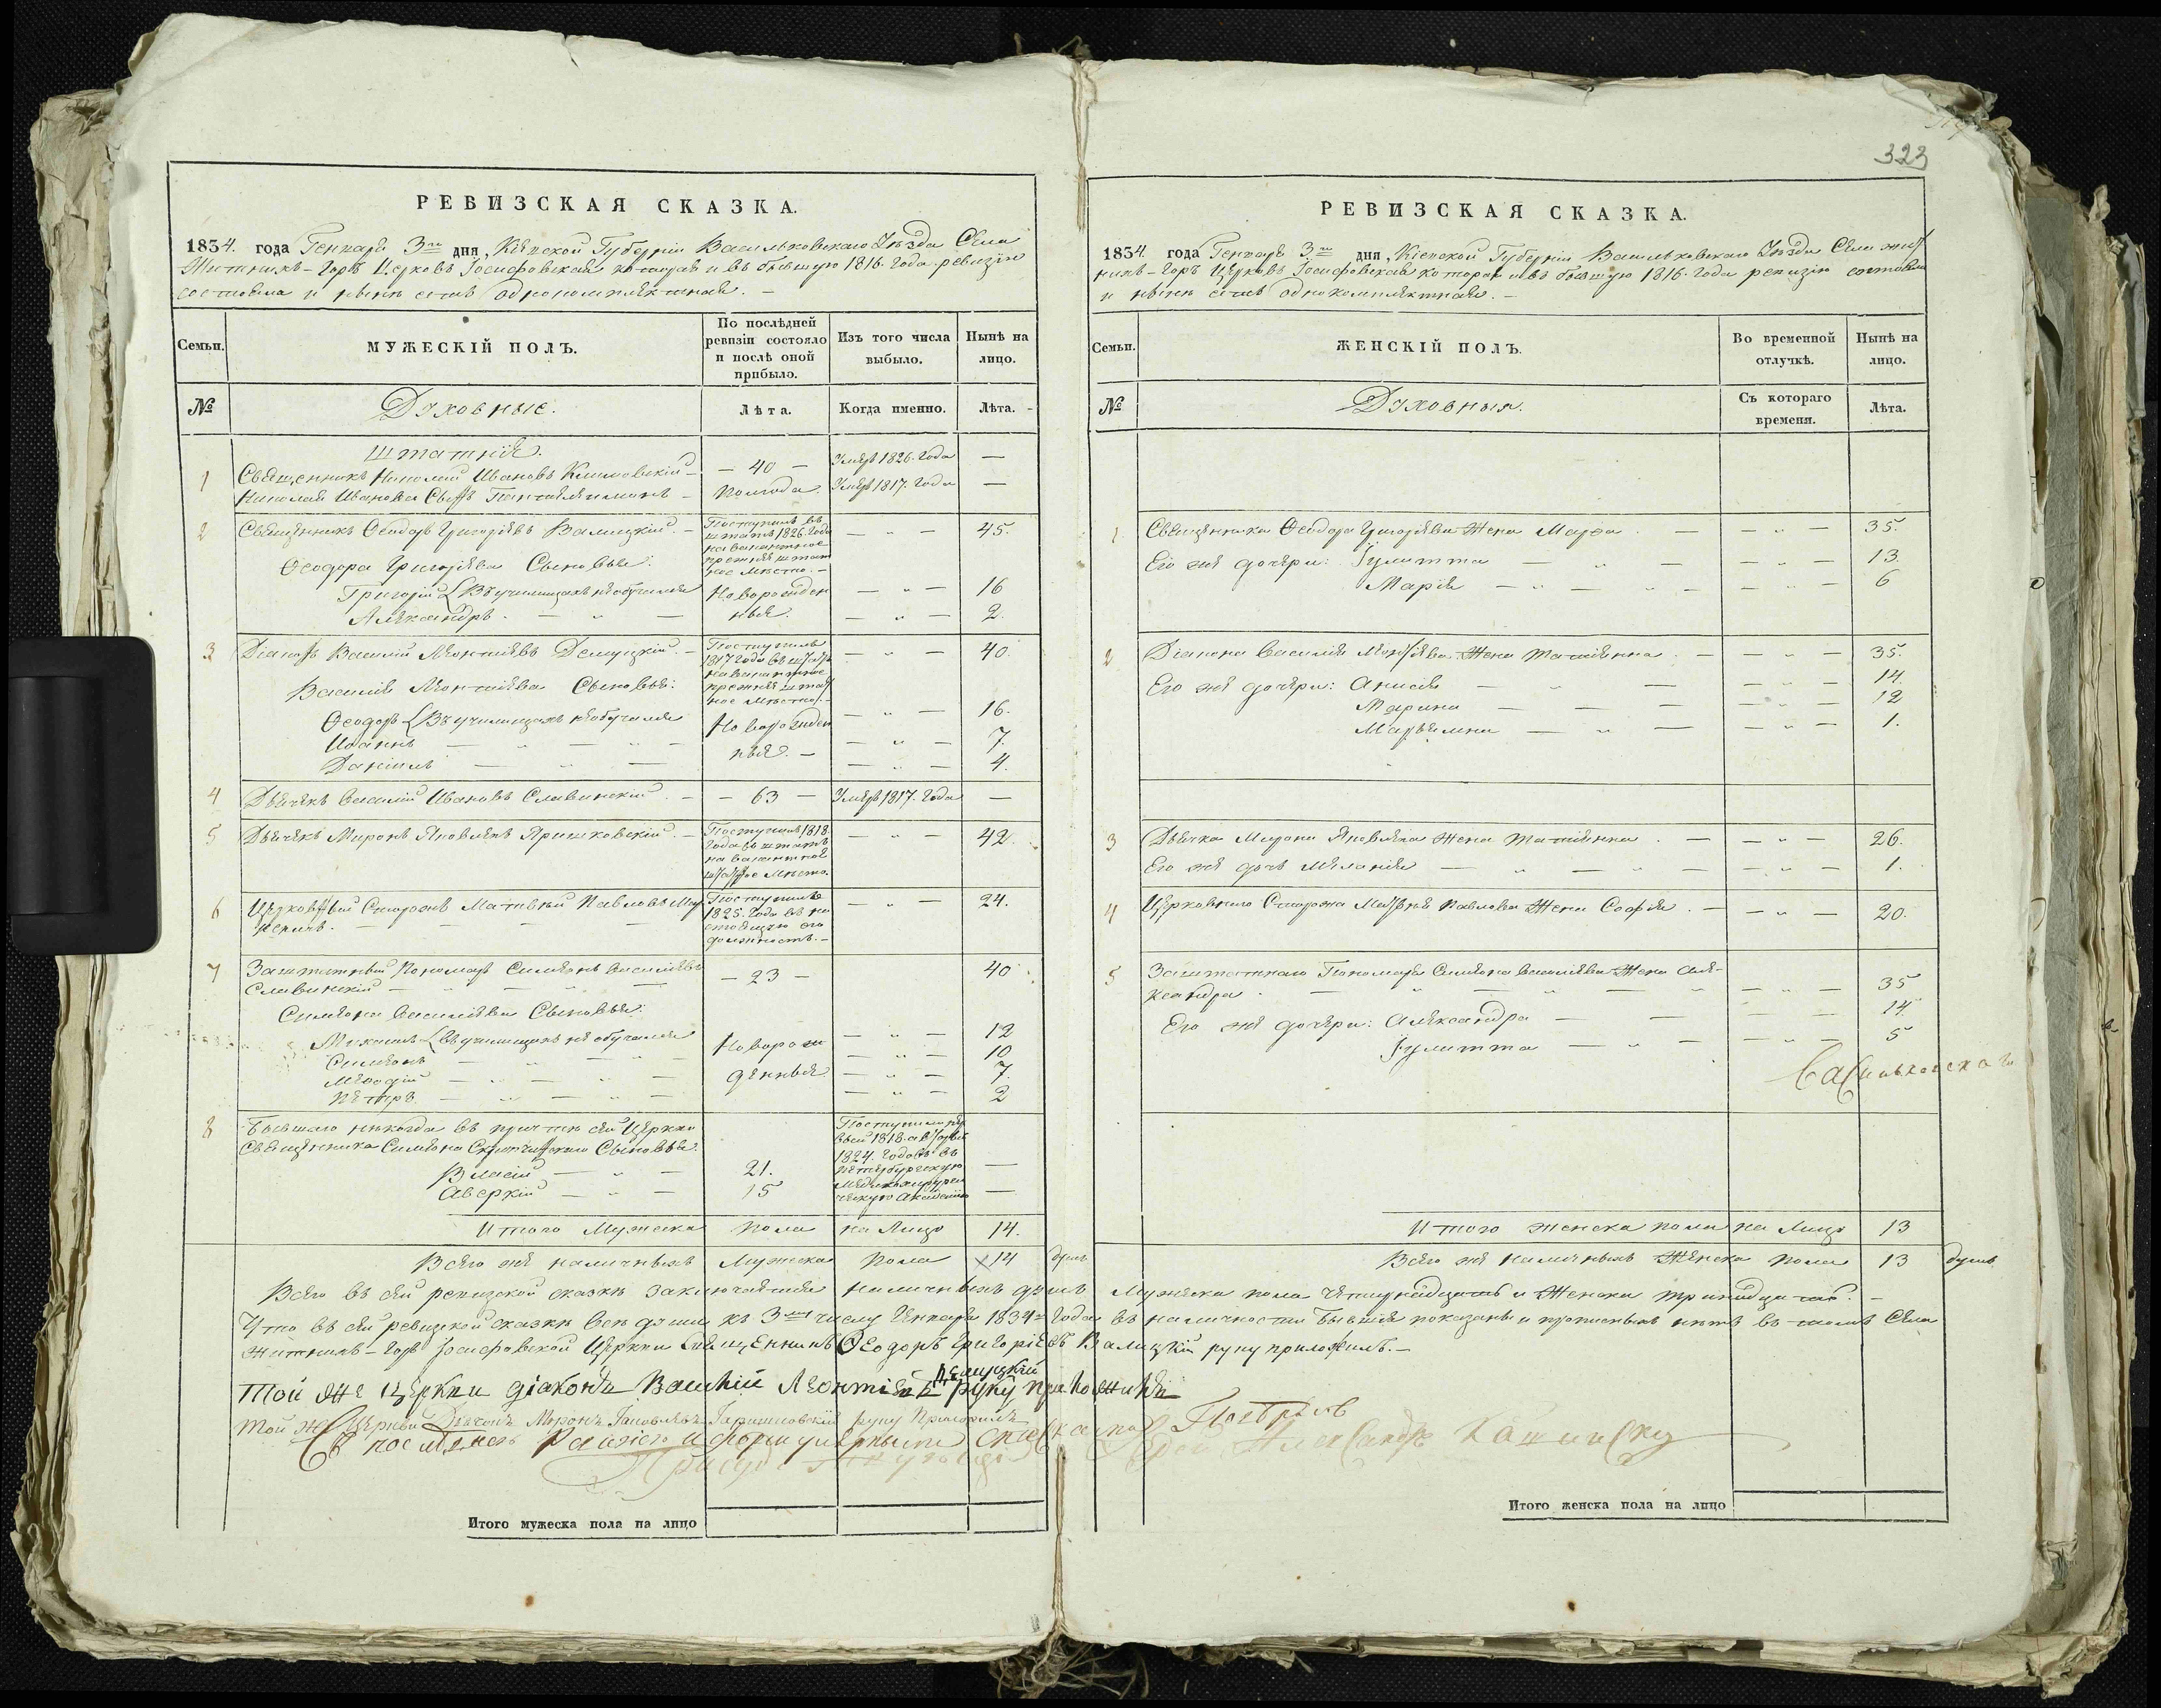 РЕВИЗСКАЯ СКАЗКА.
1834. года Генваря 3го дня, Кіевской Губерніи Васильковскаго Уѣзда Села
Житникъ-Горъ Церковь Іосифовская которая и въ бывшую 1816. года ревизію
состояла и нынѣ есть однокомплектная. —
Семьи.
МУЖЕСКІЙ ПОЛЪ.
По послѣдней
ревизіи состояло
и послѣ оной
прибыло.
Изъ того числа
выбыло.
Нынѣ на
лицо.
№
Духовные.
Лѣта.
Когда именно.
Лѣта.
Штатніе.
1 Священникъ Николай Ивановъ Климовскій — — 40 — Умеръ 1826. года —
Николая Иванова Сынъ Пантелеимонъ — полгода. Умеръ 1817. года —
2 Священникъ Ѳеодоръ Григоріевъ Валицкій. — — „ — 45.
Поступилъ въ
штатъ 1826. года
на вакантное
прежнее штат
ное мѣсто. —
Ѳеодора Григоріева Сыновья:
Григорій Въ училищахъ не обучался Новорожден — „ — 16
Александръ. — „ — ные. — „ — 2.
3 Діаконъ Василій Леонтіевъ Демуцкій. — — „ — 40.
Поступилъ
1817 года въ штатъ
на вакантное
прежнее штат
ное мѣсто. —
Василія Леонтіева Сыновья:
Ѳеодоръ Въ училищахъ не обучался Новорожден — „ — 16.
Иоаннъ — „ — „ — — „ — 7.
Даніилъ — „ — ные. — — „ — 4.
4 Дьячекъ Василій Ивановъ Славинскій. — — 63 — Умеръ 1817. года —
5 Дьячекъ Миронъ Яковлевъ Яришковскій. — — „ — 42.
Поступилъ 1818.
года въ штатъ
на вакантное
штатное мѣсто.
6 Церковный Сторожъ Матвѣй Павловъ — „ — 24.
Поступилъ
1825. года въ на
стоящую его
должность. —
7 Заштатный Пономарь Симеонъ Василіевъ — 23 — 40
Славинскій — „ — „ —
Симеона Василіева Сыновья:
Михаилъ Въ училищахъ не обучался Новорож — „ — 12
Симеонъ — „ — „ — 10
Меѳодій — „ — „ — денные — „ — 7
Петръ. — „ — „ — — „ — 2
8 Бывшаго некогда въ причтѣ сей Церкви
Священника Симеона Сыновья:
Власій — „ — 21. —
Аверкій — „ — 15 —
Поступили пер
вый 1818. а вторый
1824. годовъ въ
Петербургскую
Медикохирурги
ческую Академію
Итого Мужеска пола на Лицо 14.
Всего же наличныхъ Мужеска пола 14 душъ
323
РЕВИЗСКАЯ СКАЗКА.
1834. года Генваря 3го дня, Кіевской Губерніи Васильковскаго Уѣзда Села Жит
никъ-Горъ Церковь Іосифовская которая и въ бывшую 1816. года ревизію состояла
и нынѣ есть однокомплектная. —
Семьи.
ЖЕНСКІЙ ПОЛЪ.
Во временной
отлучкѣ.
Нынѣ на
лицо.
№
Духовныя.
Съ котораго
времени.
Лѣта.
1. Священника Ѳеодора Григоріева Жена Марѳа. — — „ — 35.
Его же дочери: Іулитта — „ — — „ — 13.
Марія — „ — „ — — „ — 6
2 Діакона Василія Леонтіева Жена Татіянна. — — „ — 35.
Его же дочери: Анисія — „ — — „ — 14.
Марина — — — — „ — 12
Марьямна — „ — — „ — 1.
3 Дьячка Мирона Яковлева Жена Татіянна. — — „ — 26.
Его же дочь Меланія — „ — „ — — „ — 1.
4 Церковнаго Сторожа Матвѣя Павлова Жена Софія. — — „ — 20.
5 Заштатнаго Пономаря Симеона Василіева Жена Але-
ксандра. — „ — „ — „ — „ — 35
Его же дочери: Александра — — — „ — 14.
Іулитта — „ — — „ — 5
Итого женска пола на Лицо 13
Всего же наличныхъ Женска пола 13 душъ
Всего въ сей ревизской сказкѣ заключается наличныхъ душъ Мужеска пола четырнадцать и Женска тринадцать. —
Что въ сей ревизской сказкѣ всѣ души къ 3му числу Генваря 1834го Года въ наличности бывшія показаны и прописныхъ нѣтъ въ томъ Села
Житникъ-Горъ Іосифовской Церкви Священникъ Ѳеодоръ Григоріевъ Валицкій руку приложилъ. —
Той же церкви діаконъ Василій Леонтіевъ Демуцкій руку приложилъ
Той же Церкви Дьячокъ Миронъ Іаковлевъ Яришковскій руку приложилъ
Итого мужеска пола на лицо
Итого женска пола на лицо